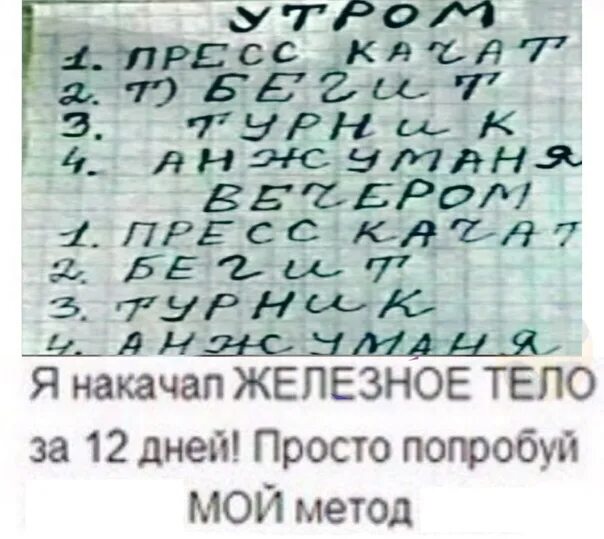 УТРОМ
1. ПРЕСС КАЧАТ
2. Т) БЕГИТ
3. ТУРНИК
4. АНЖУМАНЯ
ВЕЧЕРОМ
1. ПРЕСС КАЧАТ
2. БЕГИТ
3. ТУРНИК
4. АНЖУМАНЯ
Я накачал ЖЕЛЕЗНОЕ ТЕЛО
за 12 дней! Просто попробуй
МОЙ метод